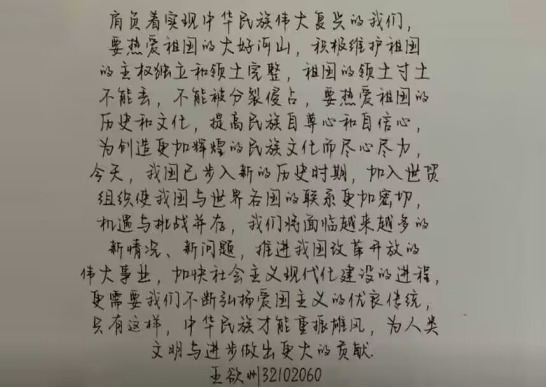 肩负着实现中华民族伟大复兴的我们，
要热爱祖国的大好河山，积极维护祖国
的主权独立和领土完整，祖国的领土寸土
不能丢，不能被分裂侵占，要热爱祖国的
历史和文化，提高民族自尊心和自信心，
为创造更加辉煌的民族文化而尽心尽力，
今天，我国已步入新的历史时期，加入世贸
组织使我国与世界各国的联系更加密切，
机遇与挑战并存，我们将面临越来越多的
新情况、新问题，推进我国改革开放的
伟大事业，加快社会主义现代化建设的进程，
更需要我们不断弘扬爱国主义的优良传统，
只有这样，中华民族才能重振雄风，为人类
文明与进步做出更大的贡献.
王欲州32102060